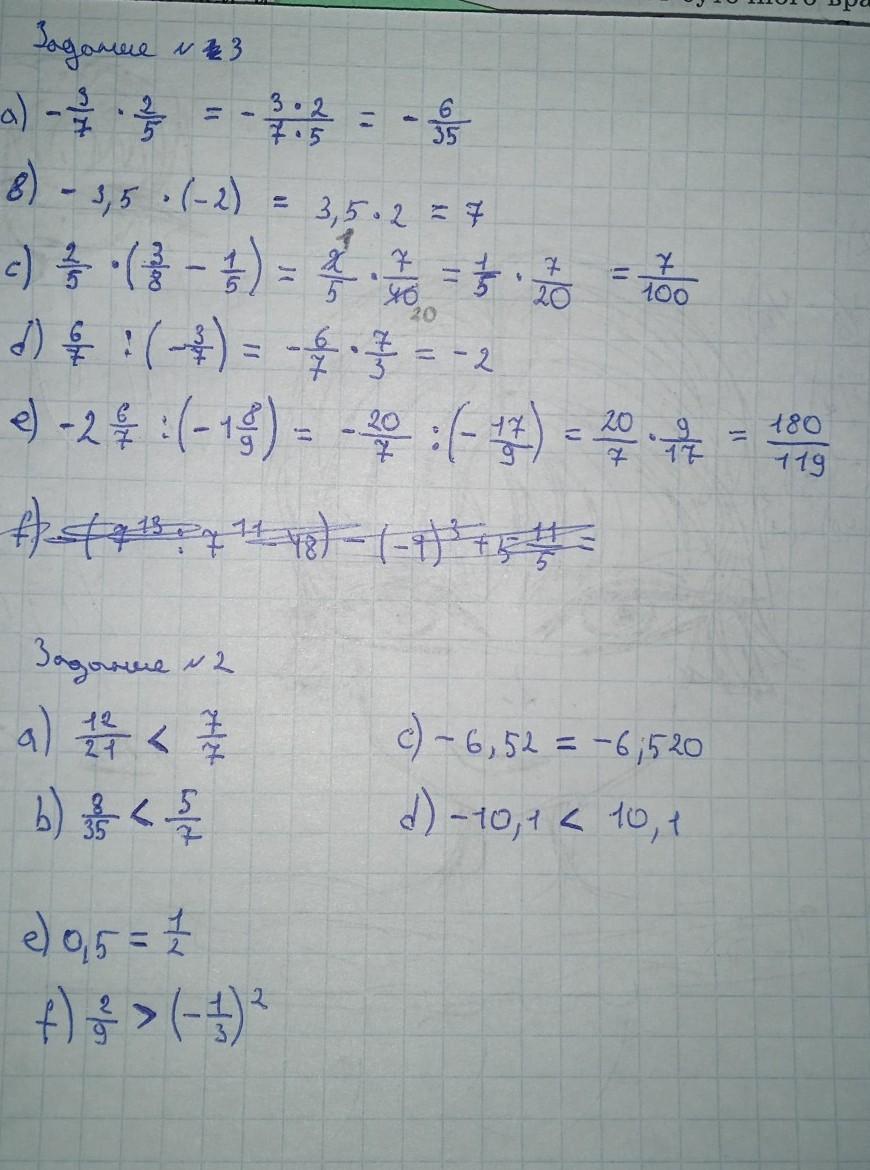 Задание №3
a) -3/7 · 2/5 = - 3·2/7·5 = - 6/35
в) - 3,5 · (-2) = 3,5 · 2 = 7
c) 2/5 · (3/8 - 1/5) = 2/5 · 7/40 = 1/5 · 7/20 = 7/100
1
20
d) 6/7 : (-3/7) = -6/7 · 7/3 = -2
e) -2 6/7 : (-1 8/9) = -20/7 : (-17/9) = 20/7 · 9/17 = 180/119
Задание №2
a) 12/21 < 7/7
c) -6,52 = -6,520
b) 8/35 < 5/7
d) -10,1 < 10,1
e) 0,5 = 1/2
f) 2/9 > (-1/3)²